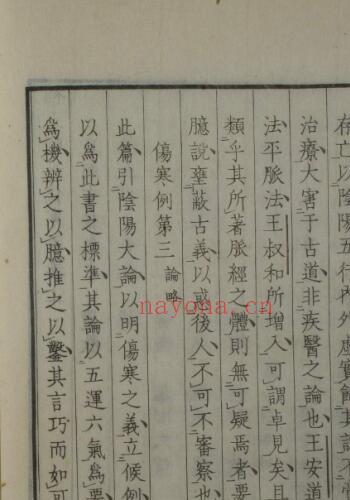 存亡以陰陽五行內外虛實飾其說不
治療大害于古道非疾醫之論也王安道
法平脈法王叔和所增入可謂卓見矣且
類乎其所著脈經之體則無可疑焉者要
臆說壅蔽古義以惑後人不可不審察也
傷寒例第三 論略
此篇引陰陽大論以明傷寒之義立候例
以爲此書之標準其論以五運六氣爲要
爲機辨之以臆推之以鑿其言巧而如可
nayona.cn